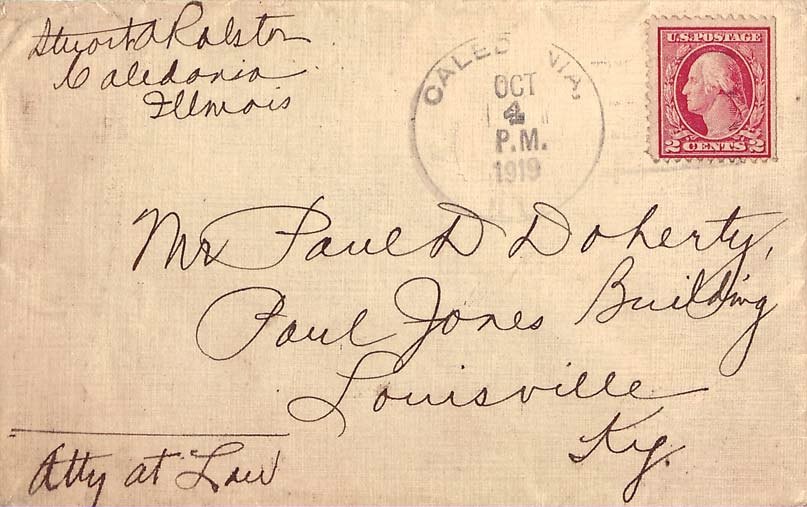 Stuart A Ralston
Caledonia
Illinois
CALEDONIA,
OCT
4
P.M.
1919
U.S. POSTAGE
2 CENTS 2
Mr Paul D Doherty,
Paul Jones Building
Louisville
Ky.
Atty at Law